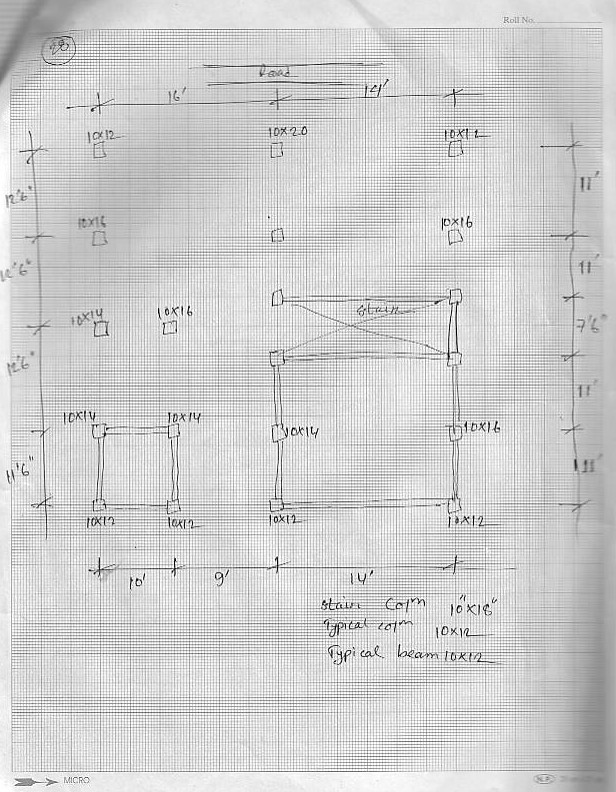 Roll No.
28
Road
16' 14'
10x12 10x20 10x12
12'6" 11'
10x16 10x16
12'6" 11'
10x14 10x16 stair 7'6"
12'6" 11'
10x14 10x14 10x14 10x16
11'6" 11'
10x12 10x12 10x12 10x12
10' 9' 14'
stair Colm 10"x18"
Typical colm 10x12
Typical beam 10x12
MICRO